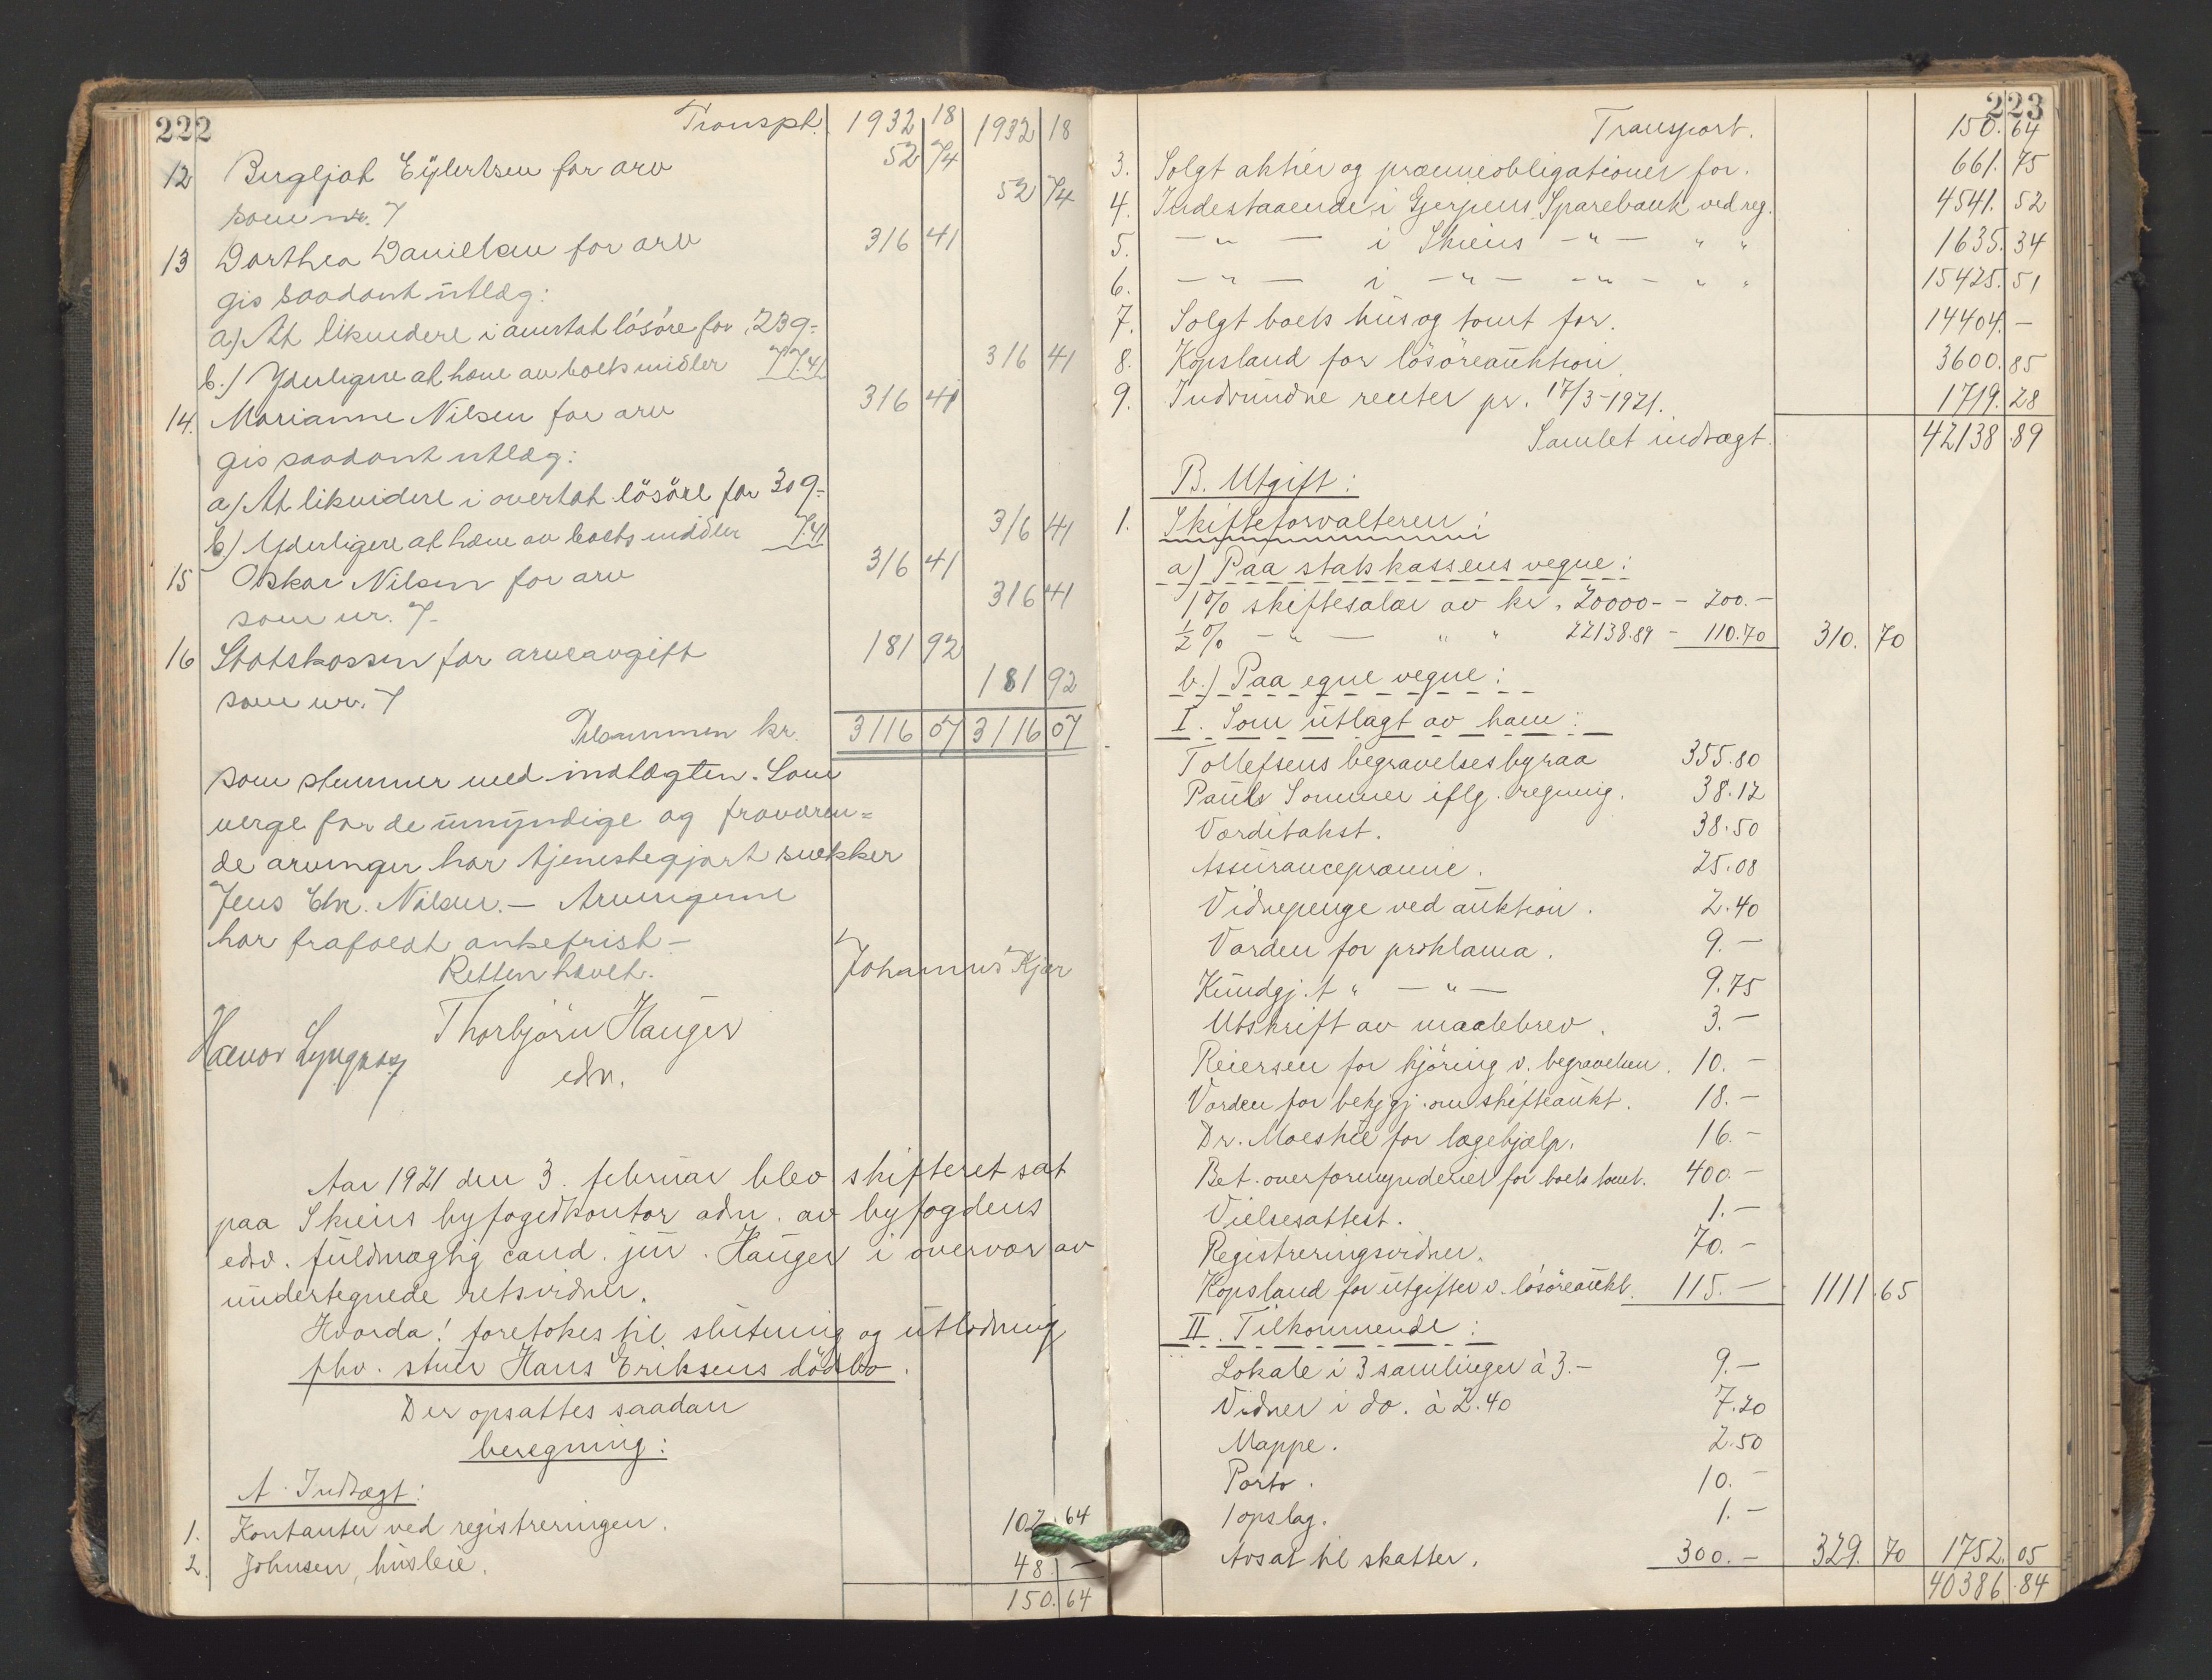 222
Transpt. 1932 18 1932 18
12 Bergljot Eylertsen for arv 52 74
som nr. 7 52 74
13 Dorthea Danielsen for arv 316 41
gis saadant utlæg:
a) At likvidere i overtat lösöre for 239.-
b.) Yderligere at hæve av boets midler 77.41 316 41
14. Marianne Nilsen for arv 316 41
gis saadant utlæg:
a) At likvidere i overtat lösöre for 309.-
b) Yderligere at hæve av boets midler 7.41 316 41
15 Oskar Nilsen for arv 316 41
som nr. 7. 316 41
16 Statskassen for arveavgift 181 92
som nr. 7 181 92
Tilsammen kr. 3116 07 3116 07
som stemmer med indtægten. Som
verge for de umyndige og fraværen=
de arvinger har tjenestegjort snekker
Jens Chr. Nilsen. — Arvingerne
har frafaldt ankefrist —
Retten hævet. Johannes Kjær
Thorbjörn Hauger
edv.
Halvor Lyngaas
Aar 1921 den 3. februar blev skifteret sat
paa Skiens byfogedkontor adm. av byfogdens
edsv. fuldmægtig cand. jur. Hauger i overvær av
undertegnede retsvidner.
Hvorda! foretokes til slutning og utlodning
fhv. stuer Hans Eriksens dödsbo.
Der opsattes saadan
beregning:
A. Indtægt:
1. Kontanter ved registreringen. 102.64
2. Johnsen, husleie. 48.—
150.64
223
Transport. 150.64
3. Solgt aktier og præmieobligationer for. 661.75
4. Indestaaende i Gjerpens Sparebank ved reg. 4541.52
5. — " — i Skiens — " — " " 1635.34
6. — " — i — " — — " — " " 15425.51
7. Solgt boets hus og tomt for. 14404.—
8. Kopsland for lösöreauktion 3600.85
9. Indvundne renter pr. 17/3-1921. 1719.28
Samlet indtægt. 42138.89
B. Utgift:
1. Skifteforvalteren:
a) Paa statskassens vegne:
1% skiftesalær av kr. 20000.- - 200.—
½% — " — " " 22138.89 - 110.70 310.70
b.) Paa egne vegne:
I. Som utlagt av ham:
Tollefsens begravelsesbyraa 355.80
Pauls Sommer iflg. regning. 38.12
Værditakst. 38.50
Assurancepræmie. 25.08
Vidnepenge ved auktion. 2.40
Varden for proklama. 9.—
Kundgj. t " — " — 9.75
Utskrift av maalebrev. 3.—
Reiersen for kjöring v. begravelsen. 10.—
Varden for bekjgj. om skifteaukt. 18.—
Dr. Moestue for lægehjælp. 16.—
Bet. overformynderiet for boets tomt. 400.—
Vielsesattest. 1.—
Registreringsvidner. 70.—
Kopsland for utgifter v. lösöreaukt. 115.— 1111.65
II. Tilkommende:
Lokale i 3 samlinger à 3.— 9.—
Vidner i do. à 2.40 7.20
Mappe. 2.50
Porto. 10.—
1 opslag. 1.—
Avsat til skatter. 300.— 329.70 1752.05
40386.84